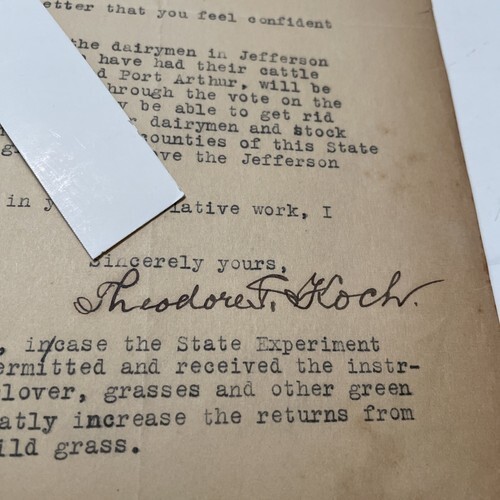 etter that you feel confident
the dairymen in Jefferson
have had their cattle
d Port Arthur, will be
through the vote on the
y be able to get rid
r dairymen and stock
counties of this State
ve the Jefferson
in y lative work, I
Sincerely yours,
Theodore F. Koch.
, in/case the State Experiment
ermitted and received the instr-
lover, grasses and other green
atly increase the returns from
ild grass.